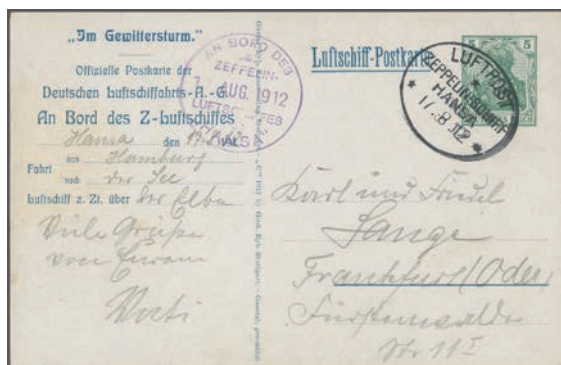 „Im Gewittersturm.“
Offizielle Postkarte der
Deutschen Luftschiffahrts-A.-G.
An Bord des Z-Luftschiffes
Hansa den 17.8.12
Fahrt von Hamburg
nach der See
Luftschiff z. Zt. über der Elbe
Viele Grüße
von Eurem
AN BORD DES
ZEPPELIN-
AUG. 1912
LUFTSCHIFFES
HANSA
Luftschiff-Postkarte
LUFTPOST
ZEPPELINSCHIFF
HANSA
17.8.12
5 5
Karl und Friedel
Lange
Frankfurt (Oder)
Fürstenwalder
Str 11 I